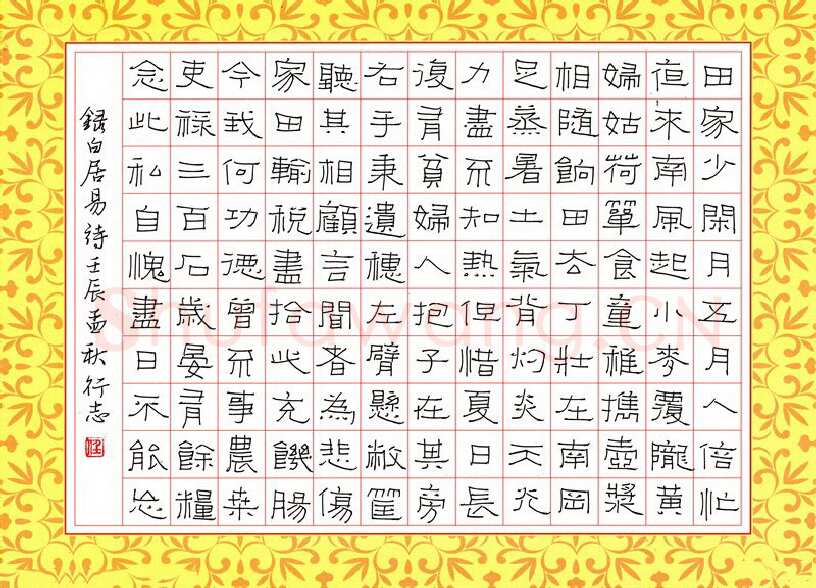 田家少閑月五月人倍忙
夜來南風起小麥覆隴黃
婦姑荷單食童稚攜壺漿
相隨餉田去丁壯在南岡
足蒸暑土氣背灼炎天光
力盡不知熱但惜夏日長
復有貧婦人抱子在其旁
右手秉遺穗左臂懸敝筐
聽其相顧言聞者為悲傷
家田輸稅盡拾此充饑腸
今我何功德曾不事農桑
吏祿三百石歲晏有餘糧
念此私自愧盡日不能忘
錄白居易詩壬辰孟秋行志
Shufawang.CN